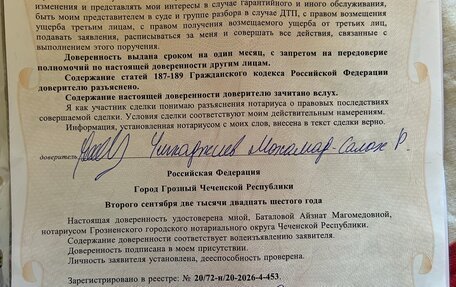 изменения и представлять мои интересы в случае гарантийного и иного обслуживания,
быть моим представителем в суде и группе разбора в случае ДТП, с правом возмещения
ущерба третьим лицам, с правом получения возмещаемого ущерба от третьих лиц,
подавать заявления, расписываться за меня и совершать все действия, связанные с
выполнением этого поручения.
Доверенность выдана сроком на один месяц, с запретом на передоверие
полномочий по настоящей доверенности другим лицам.
Содержание статей 187-189 Гражданского кодекса Российской Федерации
доверителю разъяснено.
Содержание настоящей доверенности доверителю зачитано вслух.
Я как участник сделки понимаю разъяснения нотариуса о правовых последствиях
совершаемой сделки. Условия сделки соответствуют моим действительным намерениям.
Информация, установленная нотариусом с моих слов, внесена в текст сделки верно.
доверитель
Российская Федерация
Город Грозный Чеченской Республики
Второго сентября две тысячи двадцать шестого года
Настоящая доверенность удостоверена мной, Баталовой Айзнат Магомедовной,
нотариусом Грозненского городского нотариального округа Чеченской Республики.
Содержание доверенности соответствует волеизъявлению заявителя.
Доверенность подписана в моем присутствии.
Личность заявителя установлена, дееспособность проверена.
Зарегистрировано в реестре: № 20/72-н/20-2026-4-453.